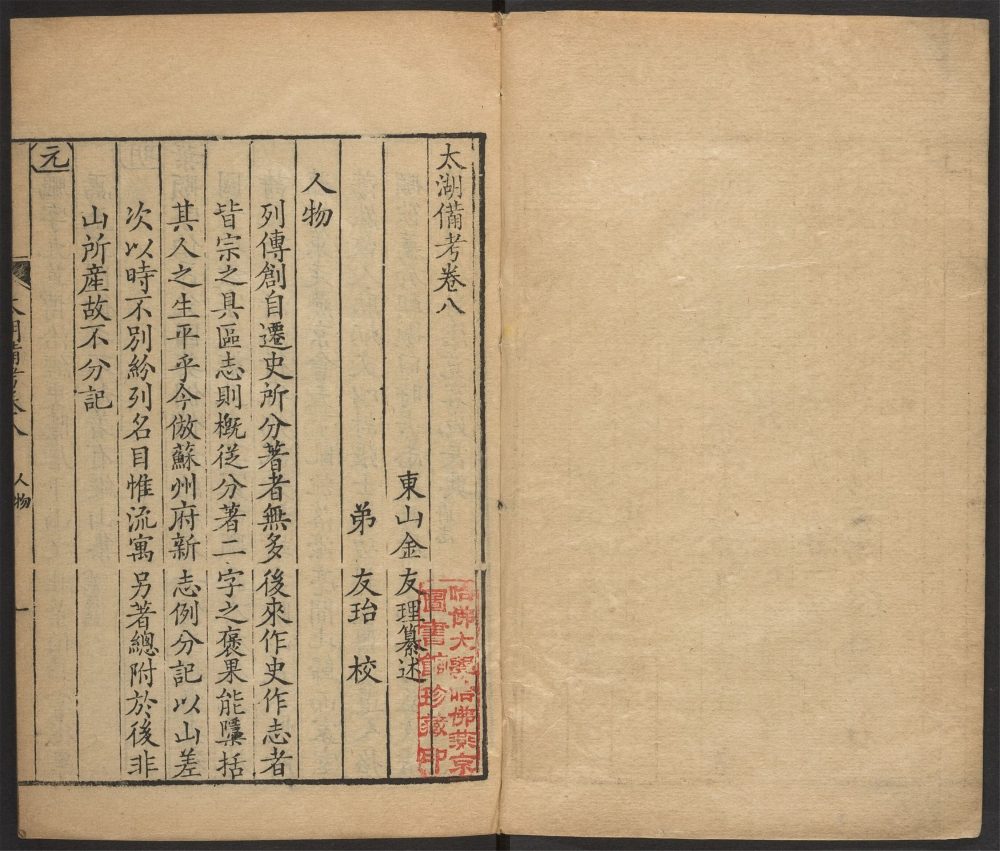 太湖備考卷八
東山金友理纂述
弟友珆校
人物
列傳創自遷史所分著者無多後來作史作志者
皆宗之具區志則概從分著二字之褒果能櫽括
其人之生平乎今倣蘇州府新志例分記以山差
次以時不別紛列名目惟流寓另著總附於後非
山所産故不分記
元
太湖備考卷八
人物
一
哈佛大學哈佛燕京
圖書館珍藏印